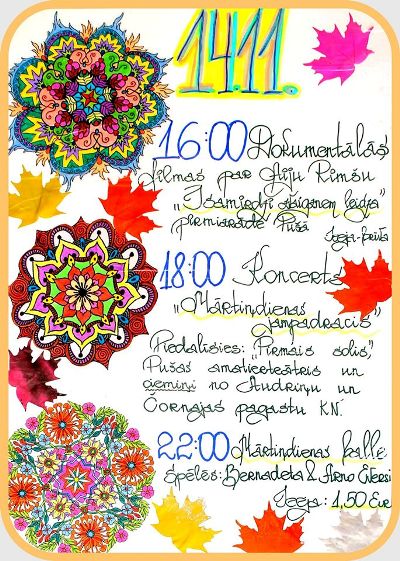 14.11.
16:00 Dokumentālās
filmas par Aiju Rimšu
pirmizrāde Pušā
Ieeja-brīva
18:00 Koncerts
"Mārtiņdienas
jampadracis"
Piedalīsies: "Pirmais solis",
Pušas amatierteātris un
ciemiņi no Audriņu un
Čornajas pagastu KN.
22:00 Mārtiņdienas balle
Spēlēs: Bernadeta & Arno Eversi
Ieeja: 1,50 Eur